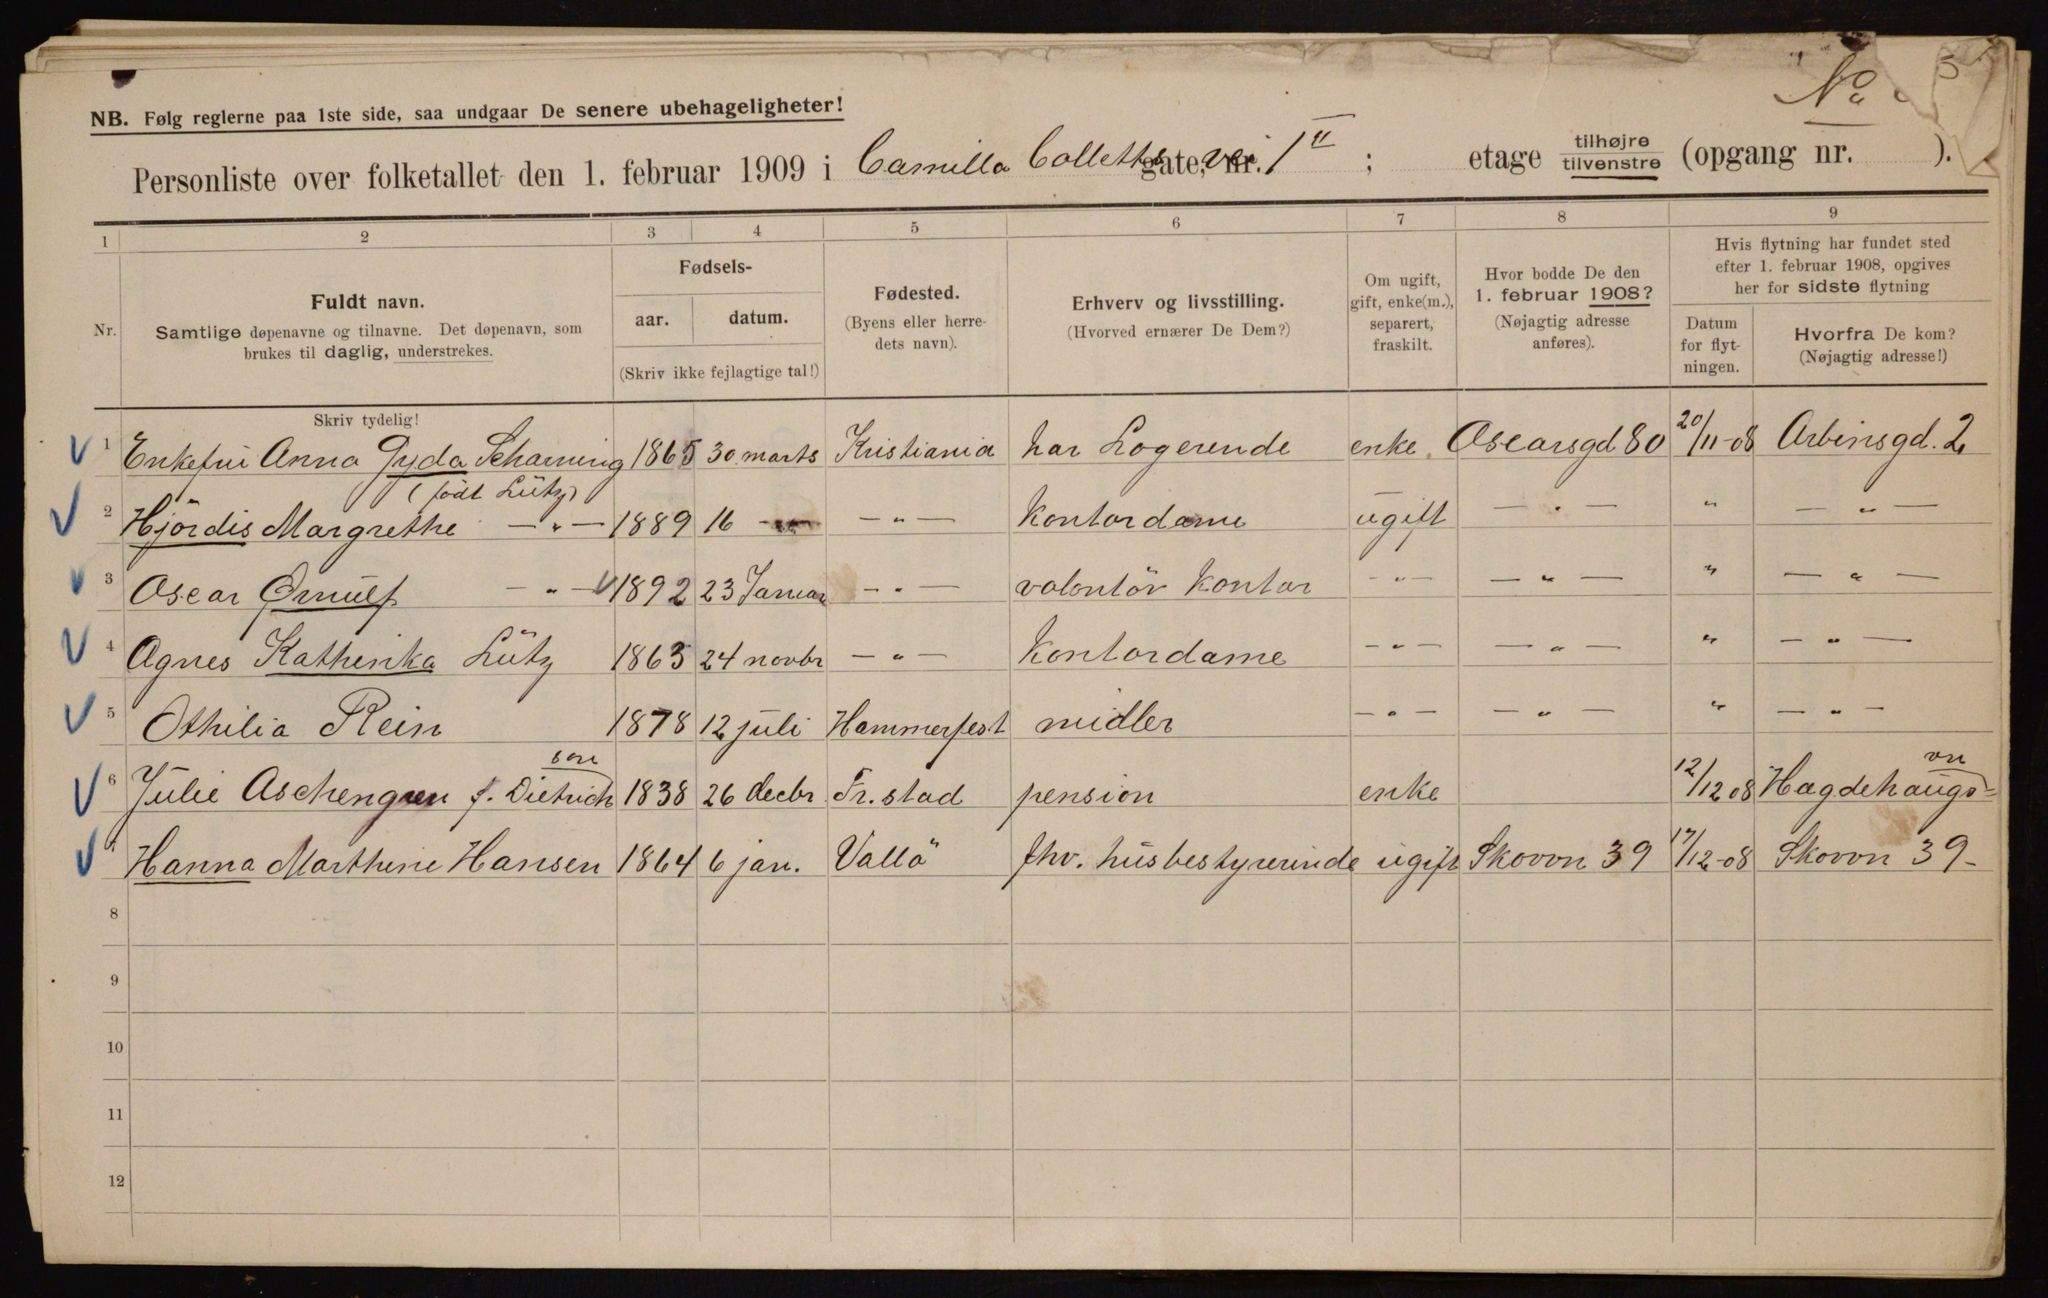 No
NB. Følg reglerne paa 1ste side, saa undgaar De senere ubehageligheter!
Personliste over folketallet den 1. februar 1909 i Camilla Colletts gate, vei nr. 1 II ; etage tilhøjre tilvenstre (opgang nr. ).
1 2 3 4 5 6 7 8 9
Nr.
Fuldt navn.
Samtlige døpenavne og tilnavne. Det døpenavn, som
brukes til daglig, understrekes.
Fødsels-
aar. datum.
(Skriv ikke fejlagtige tal!)
Fødested.
(Byens eller herre-
dets navn).
Erhverv og livsstilling.
(Hvorved ernærer De Dem?)
Om ugift,
gift, enke(m.),
separert,
fraskilt.
Hvor bodde De den
1. februar 1908?
(Nøjagtig adresse
anføres).
Hvis flytning har fundet sted
efter 1. februar 1908, opgives
her for sidste flytning
Datum
for flyt-
ningen.
Hvorfra De kom?
(Nøjagtig adresse!)
Skriv tydelig!
1 Enkefru Anna Gyda Scharning 1865 30 marts Kristiania har Logerende enke Oscarsgd 80 20/11-08 Arbinsgd. 2
(født Lütz)
2 Hjördis Margrethe — " — 1889 16 — " — — " — Kontordame ugift — " — " — " —
3 Oscar Ørnulf — " — 1892 23 Januar — " — volontör kontor — " — — " — " — " —
4 Agnes Kathinka Lütz 1863 24 novbr — " — Kontordame — " — — " — " — " —
5 Othilia Rein 1878 12 juli Hammerfest midler — " — — " — " — " —
6 Julie Aschengreen f. Dietrichson 1838 26 decbr Fr.stad pension enke 12/12 08 Hægdehaugsvn
7 Hanna Marthine Hansen 1864 6 jan. Vallö fhv. husbestyrerinde ugift Skovvn 39 17/12-08 Skovvn 39-
8
9
10
11
12